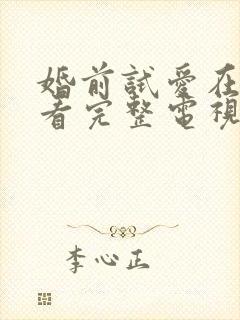 婚前試愛在
看完整電視
李心正